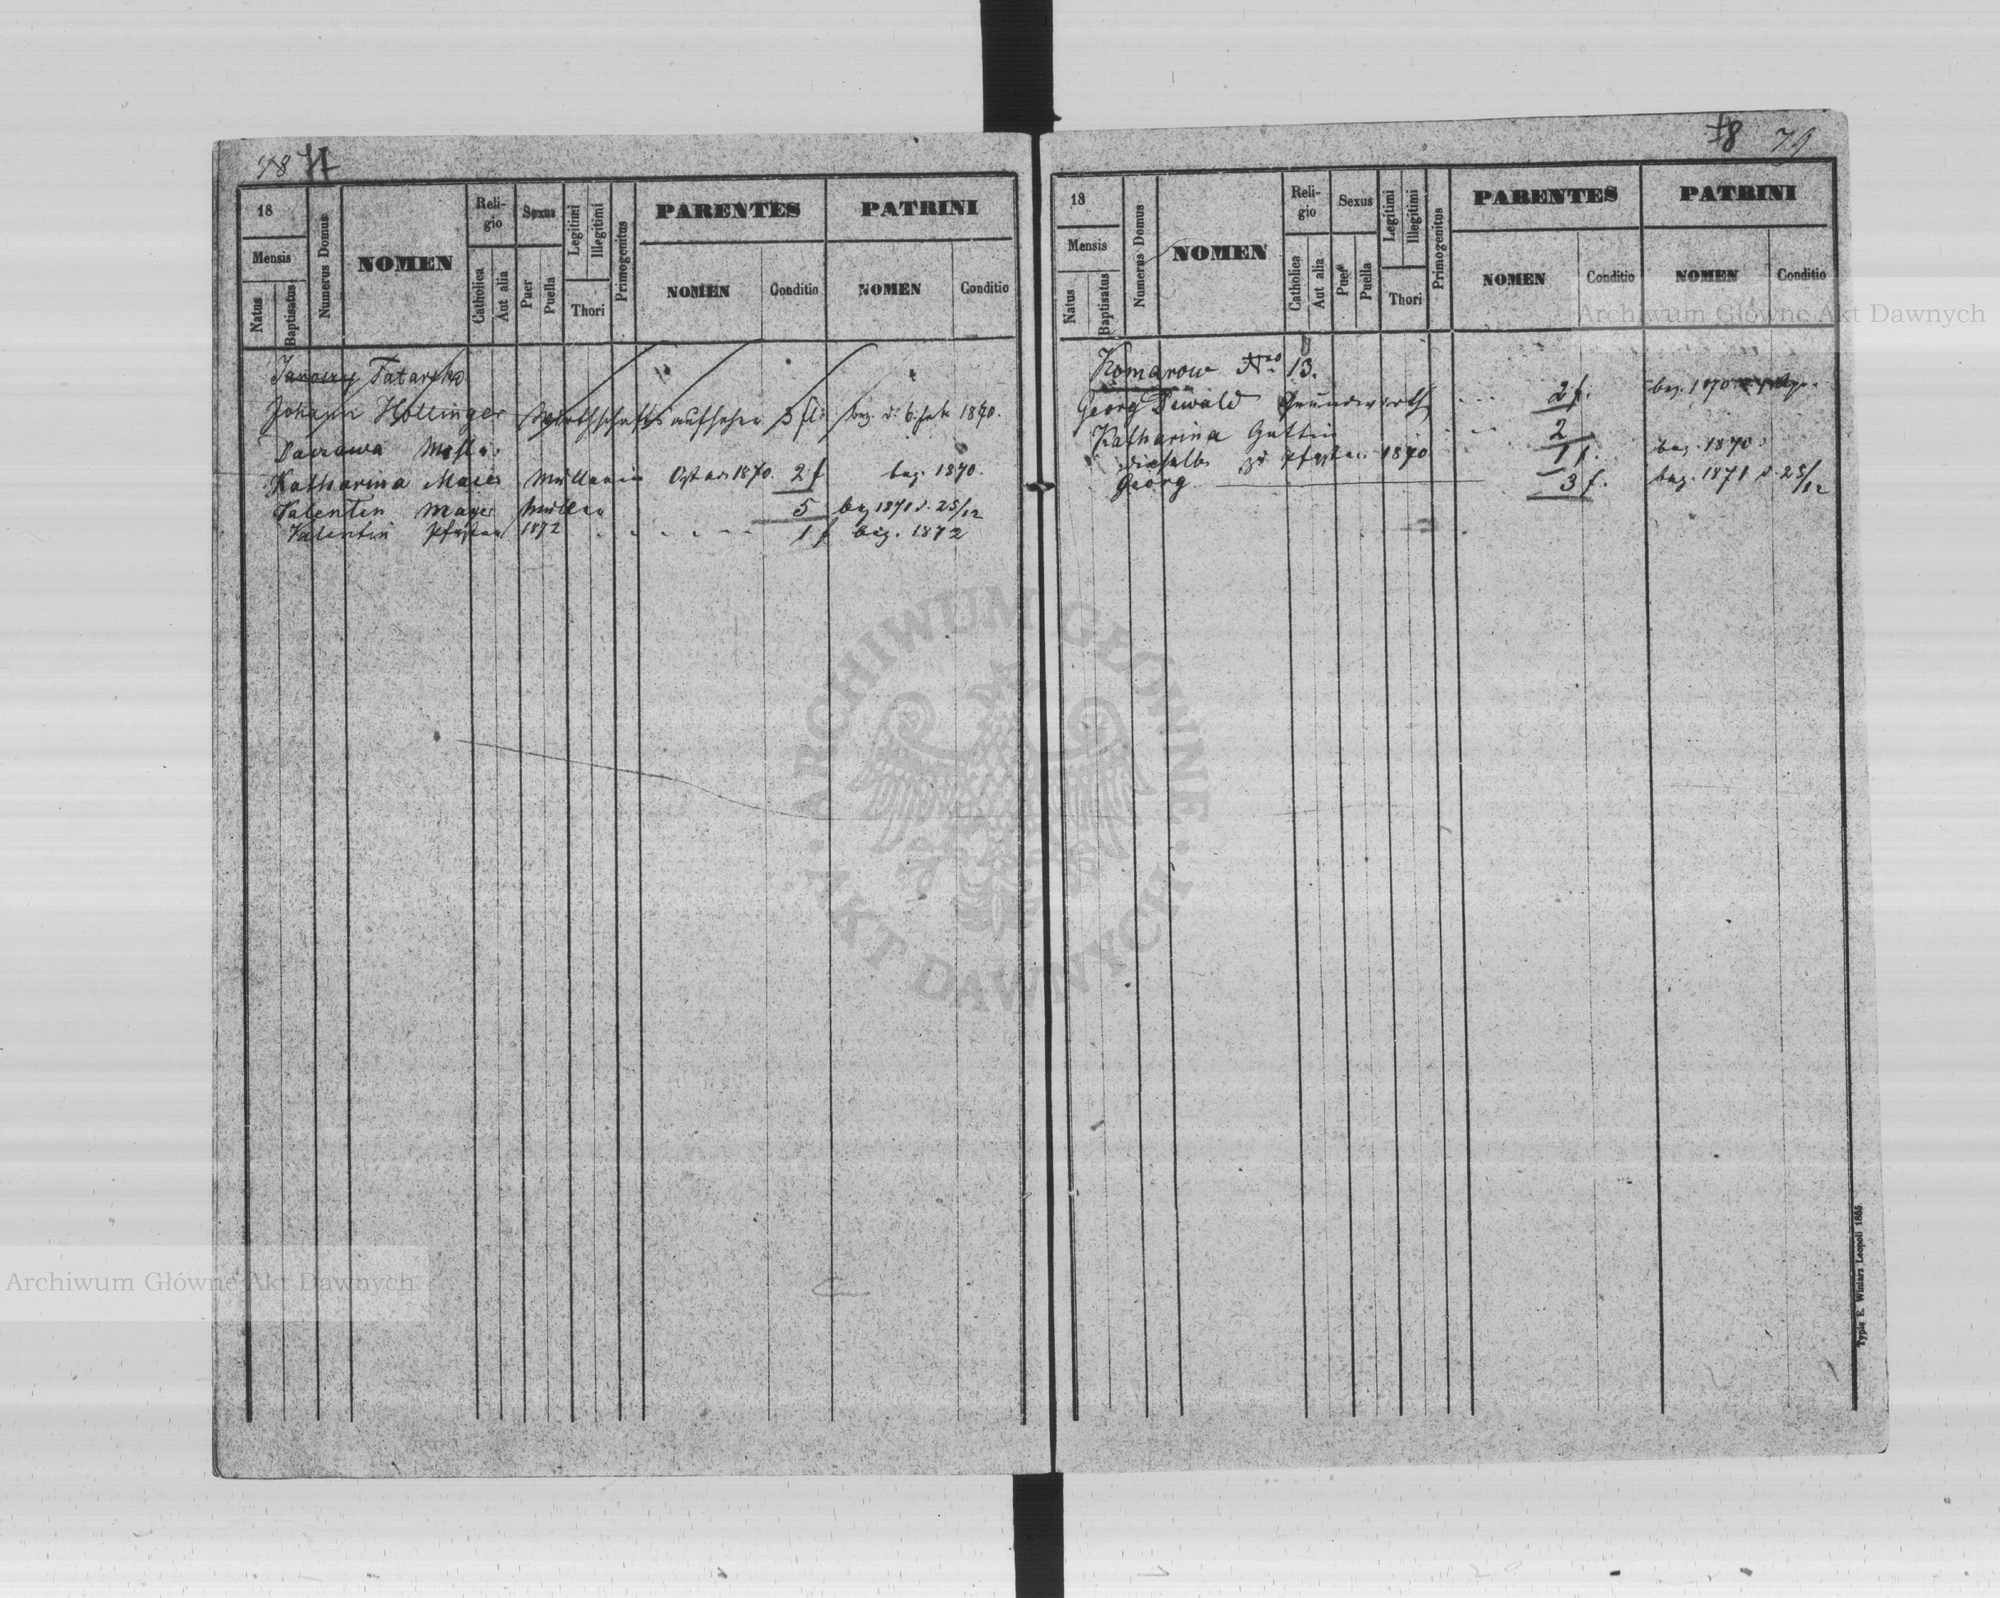 78
18
Mensis
Natus
Baptisatus
Numerus Domus
NOMEN
Reli-
gio
Catholica
Aut alia
Sexus
Puer
Puella
Legitimi
Illegitimi
Thori
Primogenitus
PARENTES
NOMEN
Conditio
PATRINI
NOMEN
Conditio
Tatarsko
Johann Hollinger Wirthschaftsaufseher 3 fl. bez. d. 6. 1870.
Katharina Maier Müllerin Ostern 1870. 2 f bez. 1870.
Valentin Mayer Müller 5 bez 1871 d. 25/12
Valentin Pfysten 1872 1 f bez. 1872
78 79
18
Mensis
Natus
Baptisatus
Numerus Domus
NOMEN
Reli-
gio
Catholica
Aut alia
Sexus
Puer
Puella
Legitimi
Illegitimi
Thori
Primogenitus
PARENTES
NOMEN
Conditio
PATRINI
NOMEN
Conditio
Komarow Nro 13.
Georg Dewald Grundwirth 2 f. bez. 1870
Katharina Gattin 2
dieselbe zu 1870 1 f. bez. 1870.
Georg 3 f. bez. 1871 d 25/12
Typis E. Winiarz Leopoli 1865
Archiwum Główne Akt Dawnych
ARCHIWUM GŁÓWNE
AKT DAWNYCH
Archiwum Główne Akt Dawnych